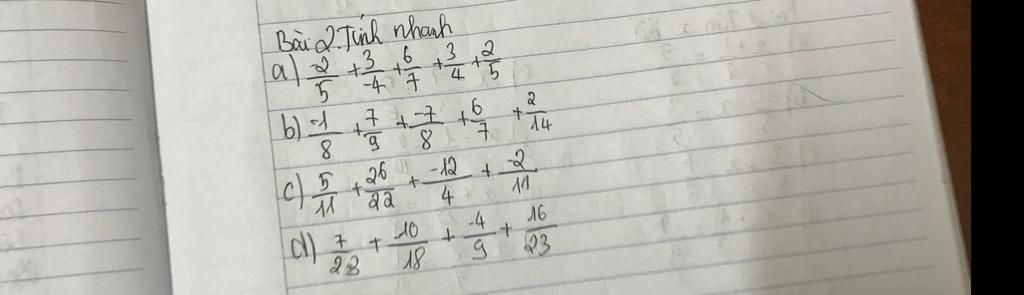 Bài 2. Tính nhanh
a) -2/5 + 3/-4 + 6/7 + 3/4 + 2/5
b) -1/8 + 7/9 + -7/8 + 6/7 + 2/14
c) 5/11 + 26/22 + -12/4 + -2/11
d) 7/23 + -10/18 + -4/9 + 16/23